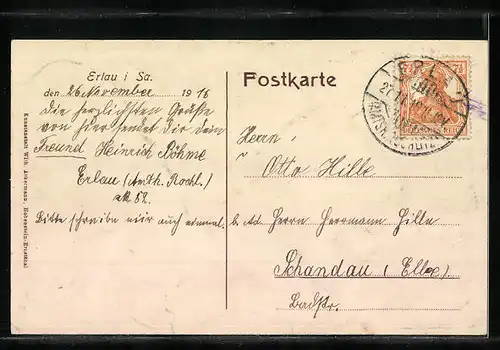 Erlau i Sa.
den 26 November 1916
Die herzlichsten Grüße
von hier sendet Dir dein
Freund Heinrich Böhme
Erlau (Amth. Rochl.)
Bitte schreibe mir auch einmal.
Kunstanstalt Wilh. Ackermann, Hohenstein-Ernstthal
Postkarte
ERL
ROCHLITZ
7½
REICH
Herrn
Otto Hille
b. Ad. Herrn Herrmann Hille
Schandau (Elbe)
Badstr.